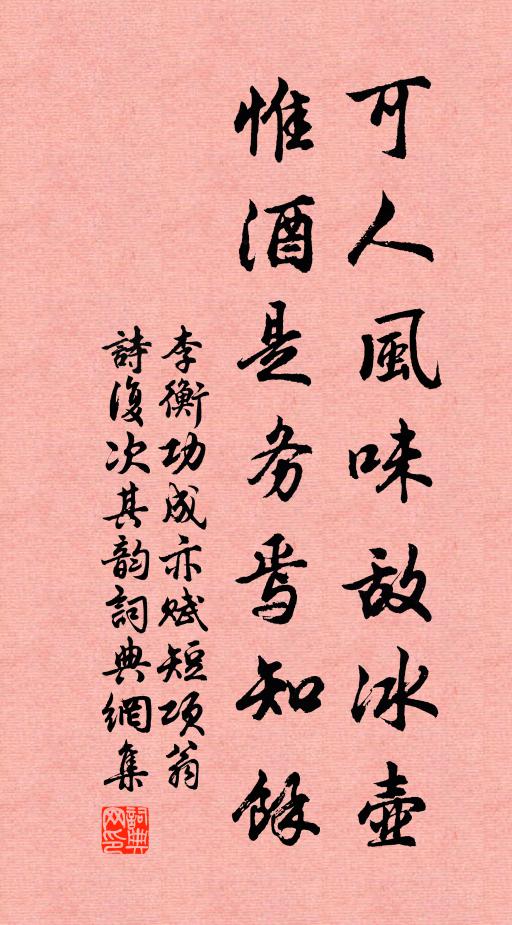 可人風味敵冰壺
惟酒是务焉知餘
李衡功成亦赋短项翁
詩復次其韵詞典網集
詞典网印